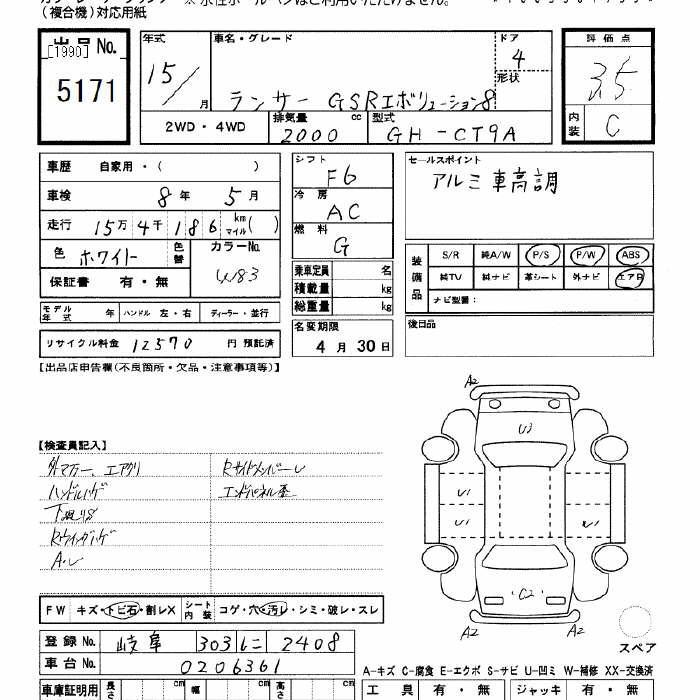 (複合機)対応用紙
出品 No.
[1990]
5171
年式 15/ 月
車名・グレード
ランサー GSRエボリューション8
ドア 4
形状
評価点
3.5
内装 C
2WD・4WD
排気量 2000 cc
型式 GH-CT9A
車歴 自家用・( )
車検 8年 5月
走行 15万 4千 186 km マイル( )
色 ホワイト 色替
カラーNo. 4183
保証書 有・無
モデル年式 年 ハンドル 左・右 ディーラー・並行
リサイクル料金 12570 円 預託済
シフト F6
冷房 AC
燃料 G
乗車定員 名
積載量 kg
総重量 kg
名変期限
4月 30日
セールスポイント
アルミ 車高調
装備品
S/R 純A/W P/S P/W ABS
純TV 純ナビ 革シート 外ナビ エアB
ナビ型番:
後日品
【出品店申告欄(不良箇所・欠品・注意事項等)】
【検査員記入】
外マフラー、エアクリ
ハンドルハゲ
A2
A2
U3
U1
U1
C2
A2
A2
スペア
FW キズ・トビ石・割レX シート内装 コゲ・穴・汚レ・シミ・破レ・スレ
登録 No. 岐阜 303 ニ 2408
車台 No. 0206361
車庫証明用 長さ cm 幅 cm 高さ cm
A-キズ C-腐食 E-エクボ S-サビ U-凹ミ W-補修 XX-交換済
工具 有・無 ジャッキ 有・無